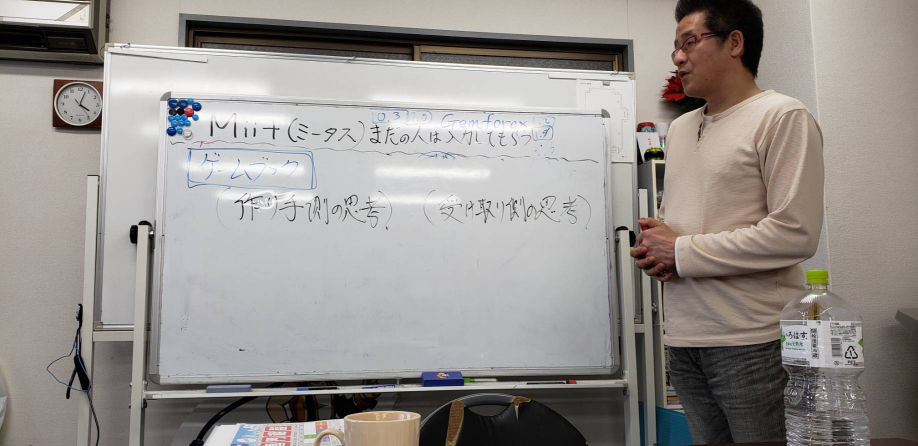 0.3 Gemforex
Mii+(ミータス)まだの人は入力してもらう
ゲームブック
(作り手側の思考) (受け取り側の思考)
いろはす